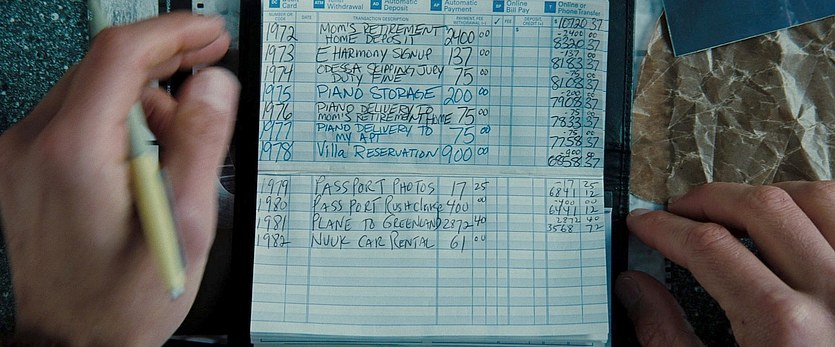 Card
Withdrawal
Automatic Payment
Online Bill Pay
Online or Phone Transfer
NUMBER OR DATE TRANSACTION DESCRIPTION PAYMENT, FEE ✓ FEE DEPOSIT, CREDIT $ 10720 37
1972 MOM'S RETIREMENT HOME DEPOSIT 2400 00 -2400 00
8320 37
1973 EHARMONY SIGNUP 137 00 -137 00
8183 37
1974 ODESSA SKIPPING JURY DUTY FINE 75 00 -75 00
8108 37
1975 PIANO STORAGE 200 00 -200 00
7908 37
1976 PIANO DELIVERY TO MOM'S RETIREMENT HOME 75 00 -75 00
7833 37
1977 PIANO DELIVERY TO MY APT 75 00 -75 00
7758 37
1978 Villa RESERVATION 900 00 -900 00
6858 37
1979 PASSPORT PHOTOS 17 25 -17 25
6841 12
1980 PASSPORT Rush Charge 400 00 -400 00
6441 12
1981 PLANE TO GREENLAND 2872 40 2872 40
3568 72
1982 NUUK CAR RENTAL 61 00